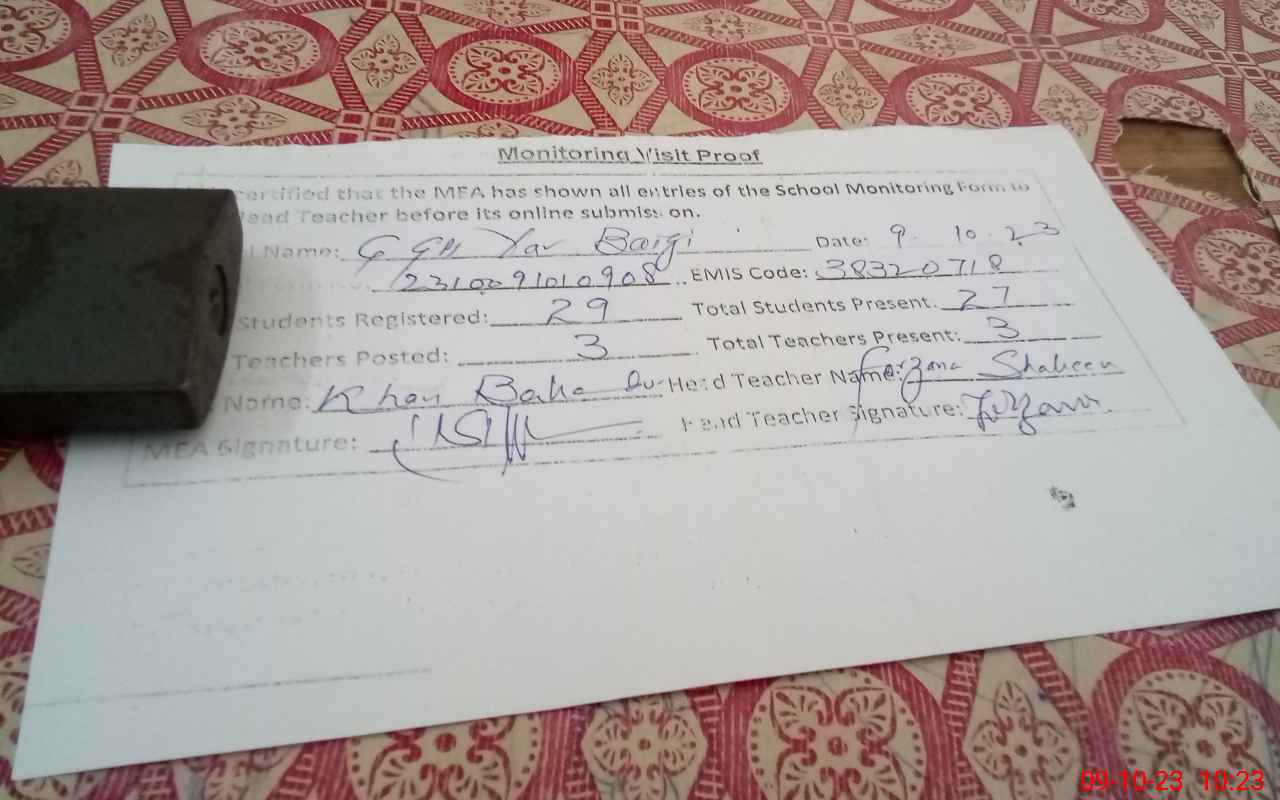 Monitoring Visit Proof
certified that the MEA has shown all entries of the School Monitoring Form to
Head Teacher before its online submission.
Name: Yar Baigi Date: 9. 10. 23
2310091010908 EMIS Code: 38320718
Students Registered: 29 Total Students Present: 27
Teachers Posted: 3 Total Teachers Present: 3
Name: Khan Baha Dur Head Teacher Name: Farzana Shaheen
MEA Signature: Head Teacher Signature:
09-10-23 10:23